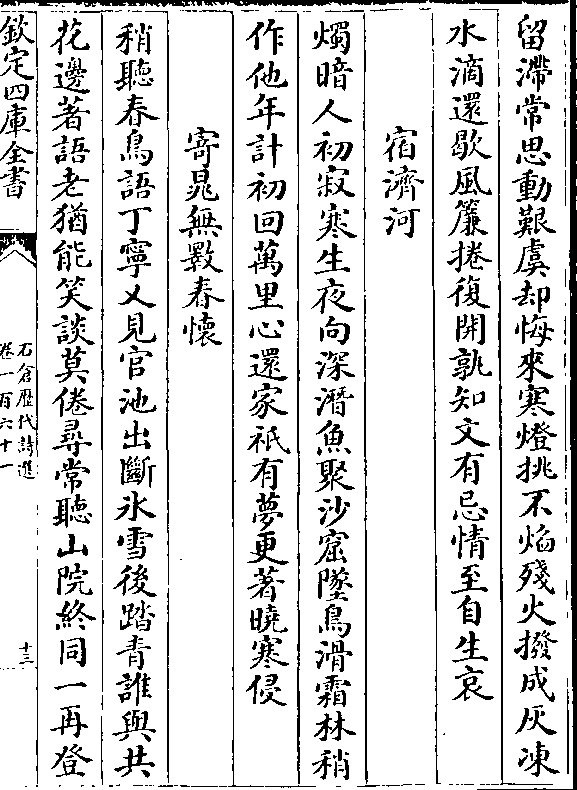 留滯常思動艱虞却悔來寒燈挑不焰殘火撥成灰凍
水滴還歇風簾捲復開孰知文有忌情至自生哀
宿濟河
燭暗人初寂寒生夜向深潛魚聚沙窟墜鳥滑霜林稍
作他年計初回萬里心還家祇有夢更著曉寒侵
寄晁無斁春懷
稍聽春鳥語丁寧又見官池出斷氷雪後踏青誰與共
花邊著語老猶能笑談莫倦尋常聽山院終同一再登
欽定四庫全書
石倉歴代詩選
卷一百六十一
十三